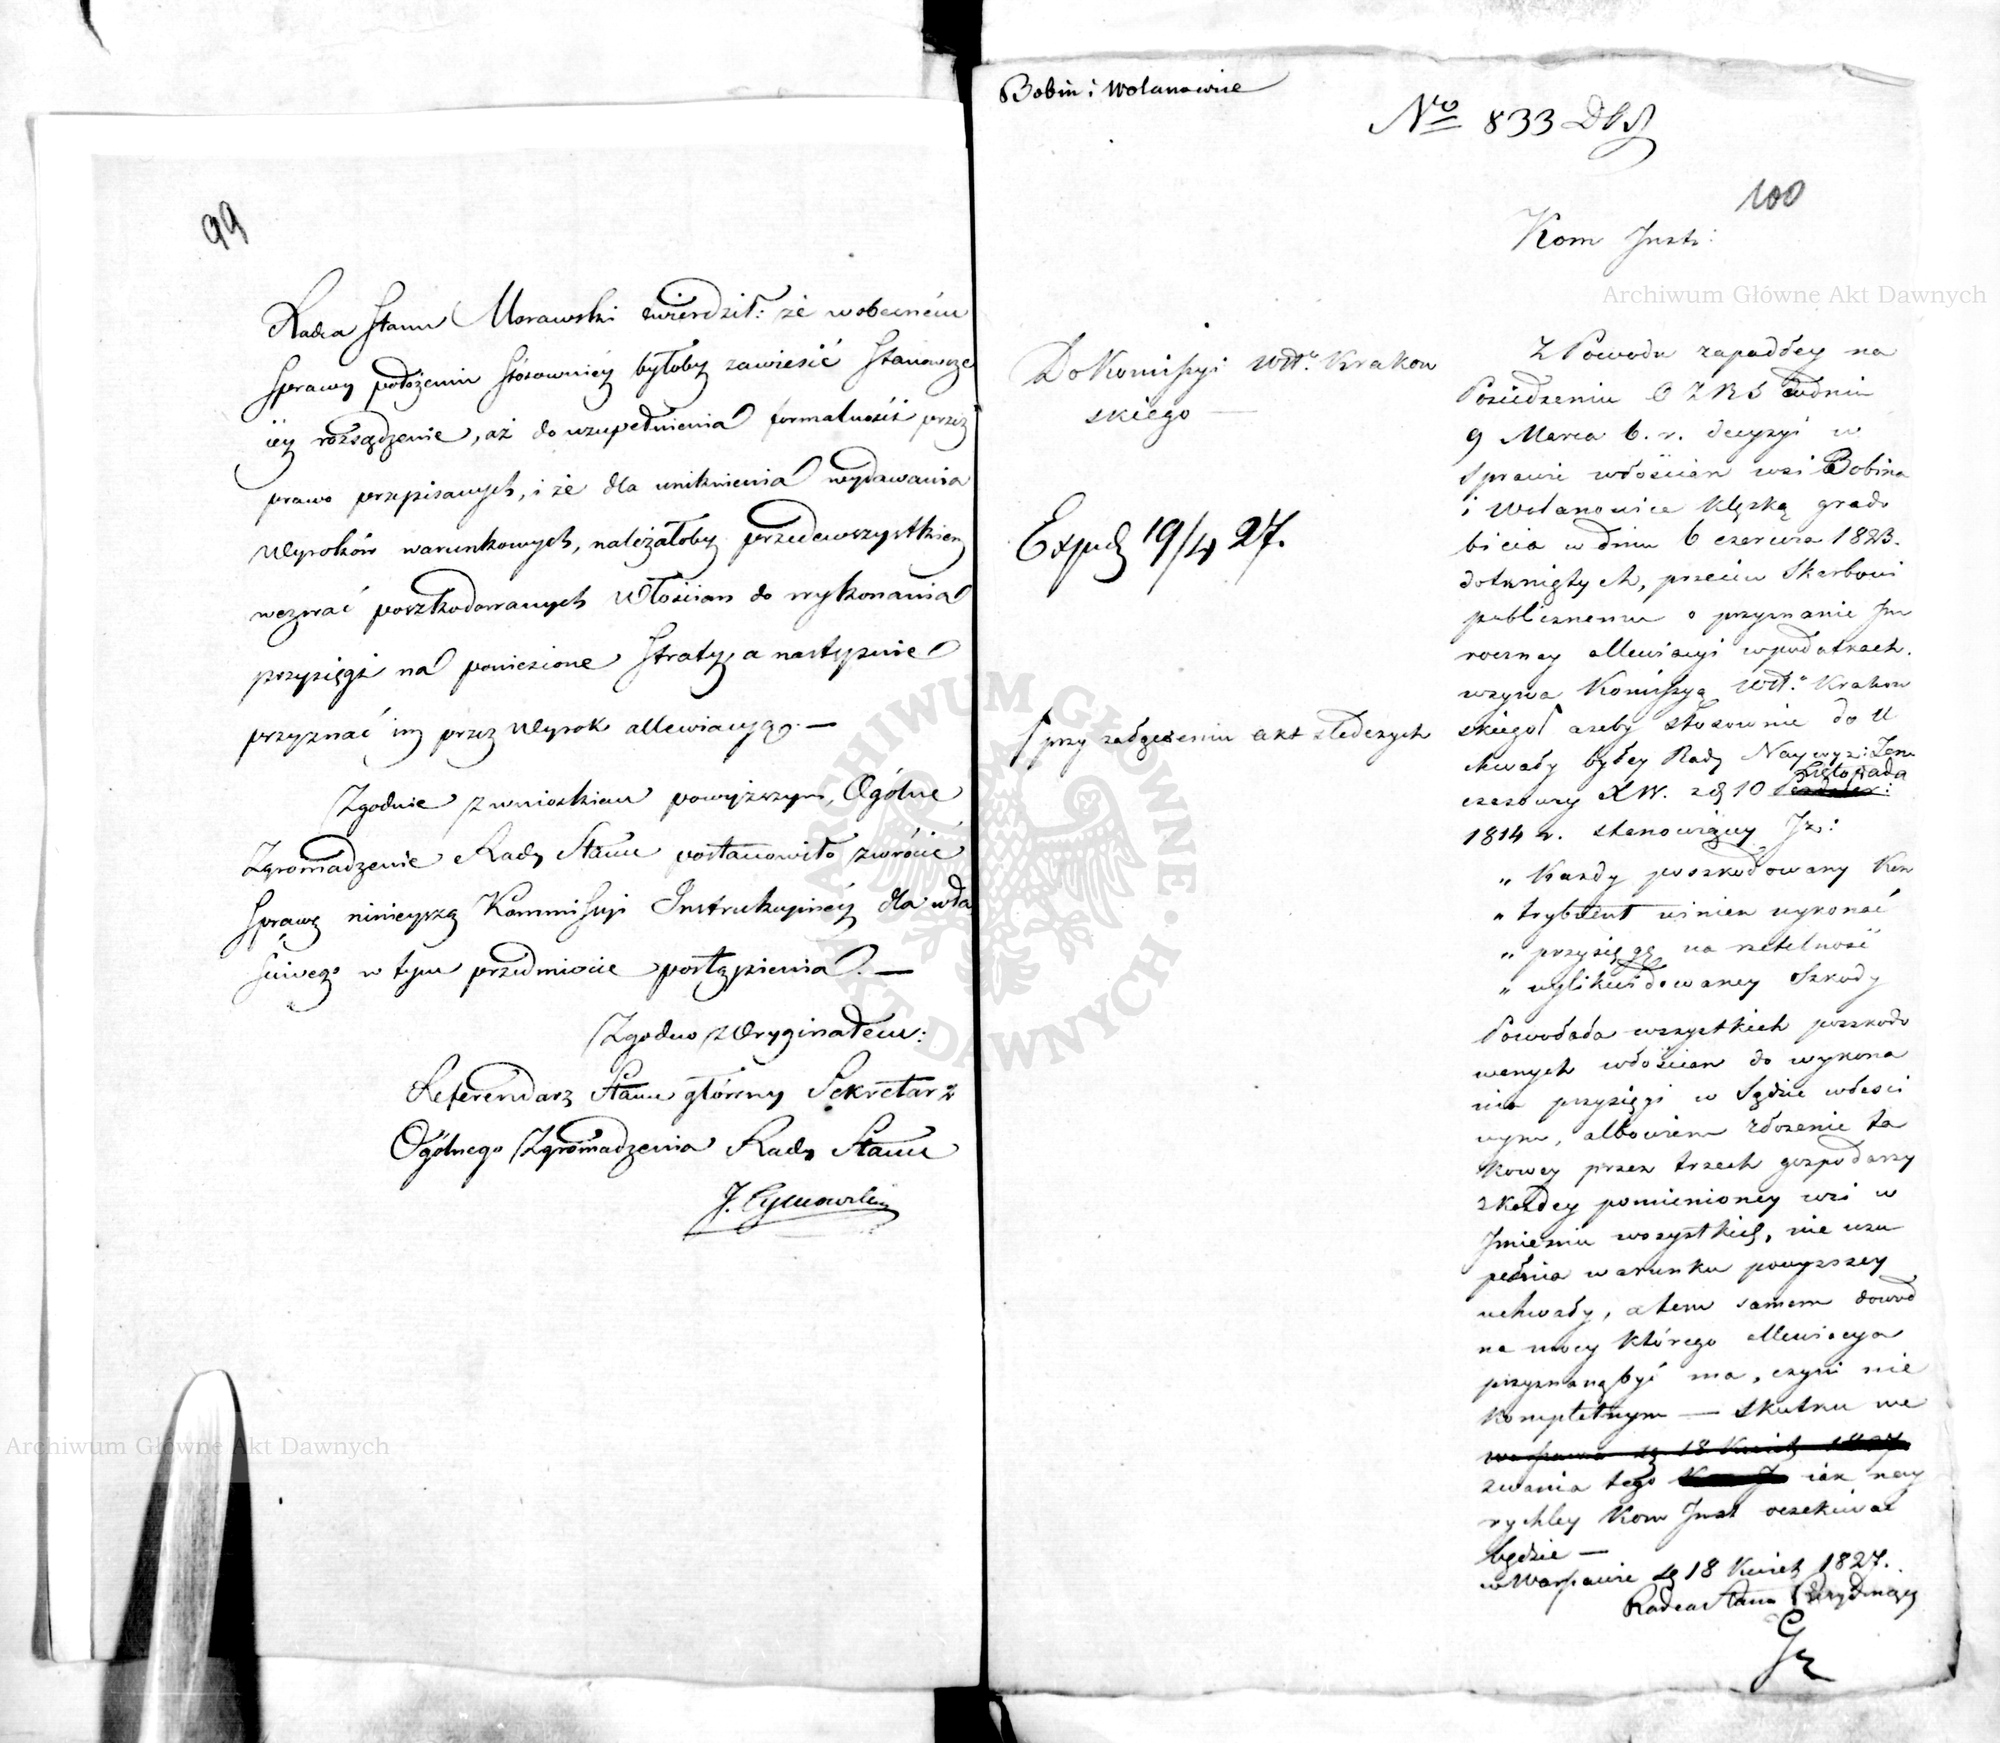 99
Radca Stanu Morawski twierdził: że w obecném
sprawy położeniu stósowniéy byłoby zawiesić stanowcze
iéy rozsądzenie, aż do uzupełnienia formalności przez
prawo przepisanych, i że dla uniknienia wydawania
Wyroków warunkowych, należałoby przedewszystkiem
wezwać poszkodowanych Włościan do wykonania
przysięgi na poniesione straty, a następnie
przyznać im przez Wyrok allewiacyą. —
Zgodnie z wnioskiem powyższym, Ogólne
Zgromadzenie Rady Stanu postanowiło zwrócić
sprawę ninieyszą Kommissyi Instrukcyinéy dla wła
ściwego w tym przedmiocie postąpienia. —
Zgodno z Oryginałem:
Referendarz Stanu główny Sekretarz
Ogólnego Zgromadzenia Rady Stanu
Bobin i Wolanowice
No 833
100
Kom Instr:
Do Komissyi Wtt. Krakow
skiego —
Exped 19/4 27.
przy załączeniu akt śledczych
Z Powodu zapadłey na
Posiedzeniu O Z R S w dniu
9 Marca b. r. decyzyi w
sprawie włościan wsi Bobina
i Wolanowice klęską grado
bicia w dniu 6 czerwca 1823.
dotkniętych, przeciw Skarbowi
publicznemu o przyznanie Im
roczney allewiacyi w podatkach.
wzywa Komissyą Wtt. Krakow
skiego ażeby stosownie do U
chwały byłey Rady Naywyz: Tym
czasowey X W. z d 10 Listopada
1814 r. stanowiącey Iż:
„ Każdy poszkodowany Kon
„ trybuent winien wykonać
„ przysięgę na rzetelność
„ wylikwidowaney Szkody
Powołała wszystkich poszkodo
wanych włościan do wykona
nia przysięgi w Sądzie właści
wym, albowiem złożenie ta
kowey przez trzech gospodarzy
z każdey pomienioney wsi w
Imieniu wszystkich, nie uzu
pełnia warunku powyższey
uchwały, a tem samem dowód
na mocy którego allewiacya
przyznaną być ma, czyni nie
kompletnym — Skutku we
zwania tego iak nay
rychley Kom Inst oczekiwać
będzie —
w Warszawie dn 18 Kwiet 1827.
Radca Stanu Prezyduiący